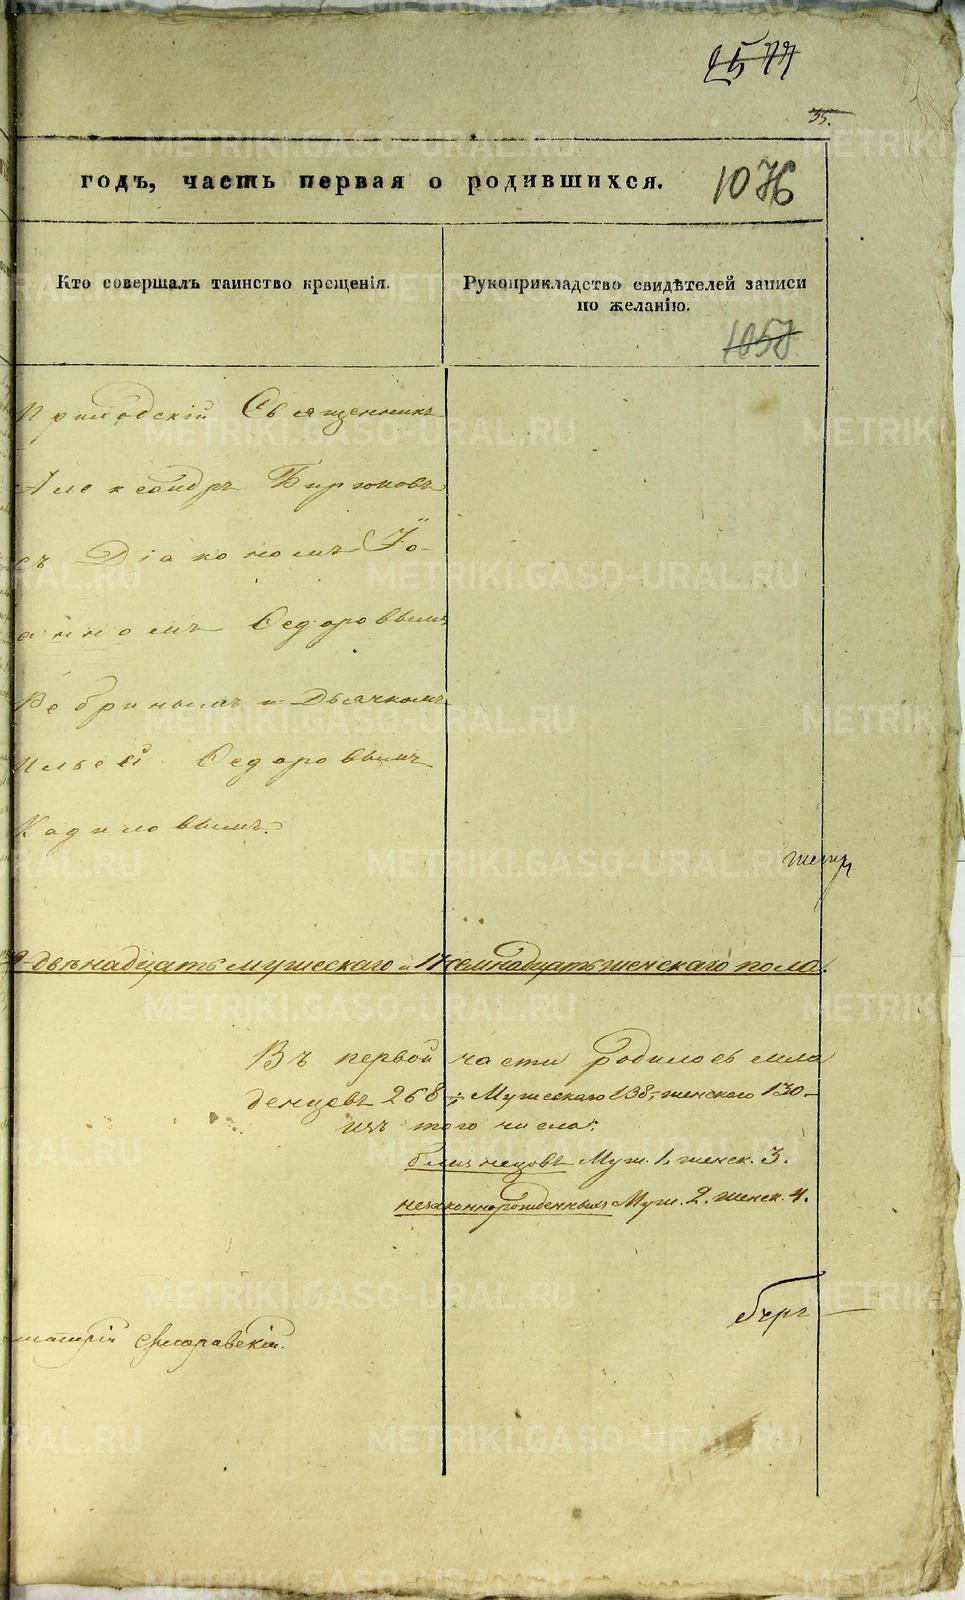 2577
35.
годъ, часть первая о родившихся.
1076
Кто совершалъ таинство крещенія.
Рукоприкладство свидѣтелей записи
по желанію.
1058
Приходскій Священникъ
Александръ Бирюковъ
съ Діакономъ Іо-
анномъ Ѳедоровымъ
и Дьячкомъ
Ильей Ѳедоровымъ
Кадиловымъ.
двѣнадцать мужескаго и 17 семнадцать женскаго пола.
Въ первой части родилось мла
денцевъ 268; Мужескаго 138, женскаго 130
изъ того числа:
близнецовъ Муж. 1, женск. 3.
незаконнорожденныхъ Муж. 2. женск. 4.
бург
METRIKI.GASO-URAL.RU